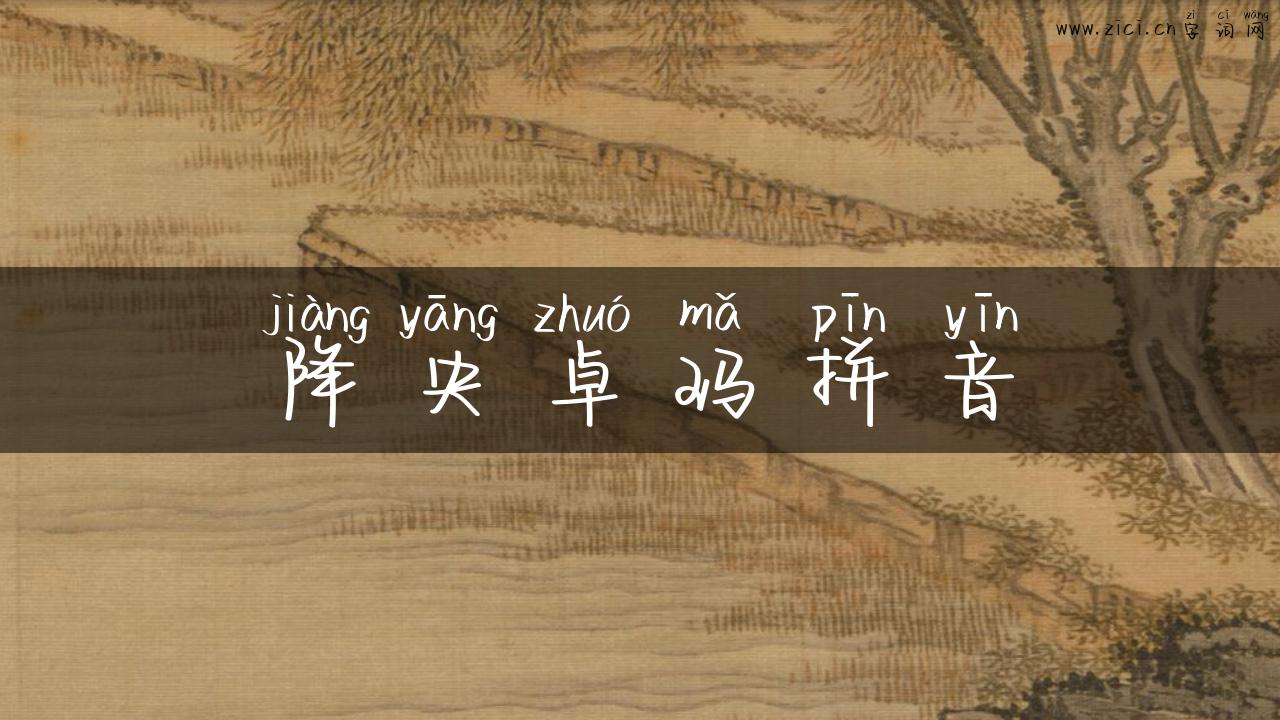 zì cí wǎng
www.zici.cn字词网
jiàng yāng zhuó mǎ pīn yīn
降央卓玛拼音